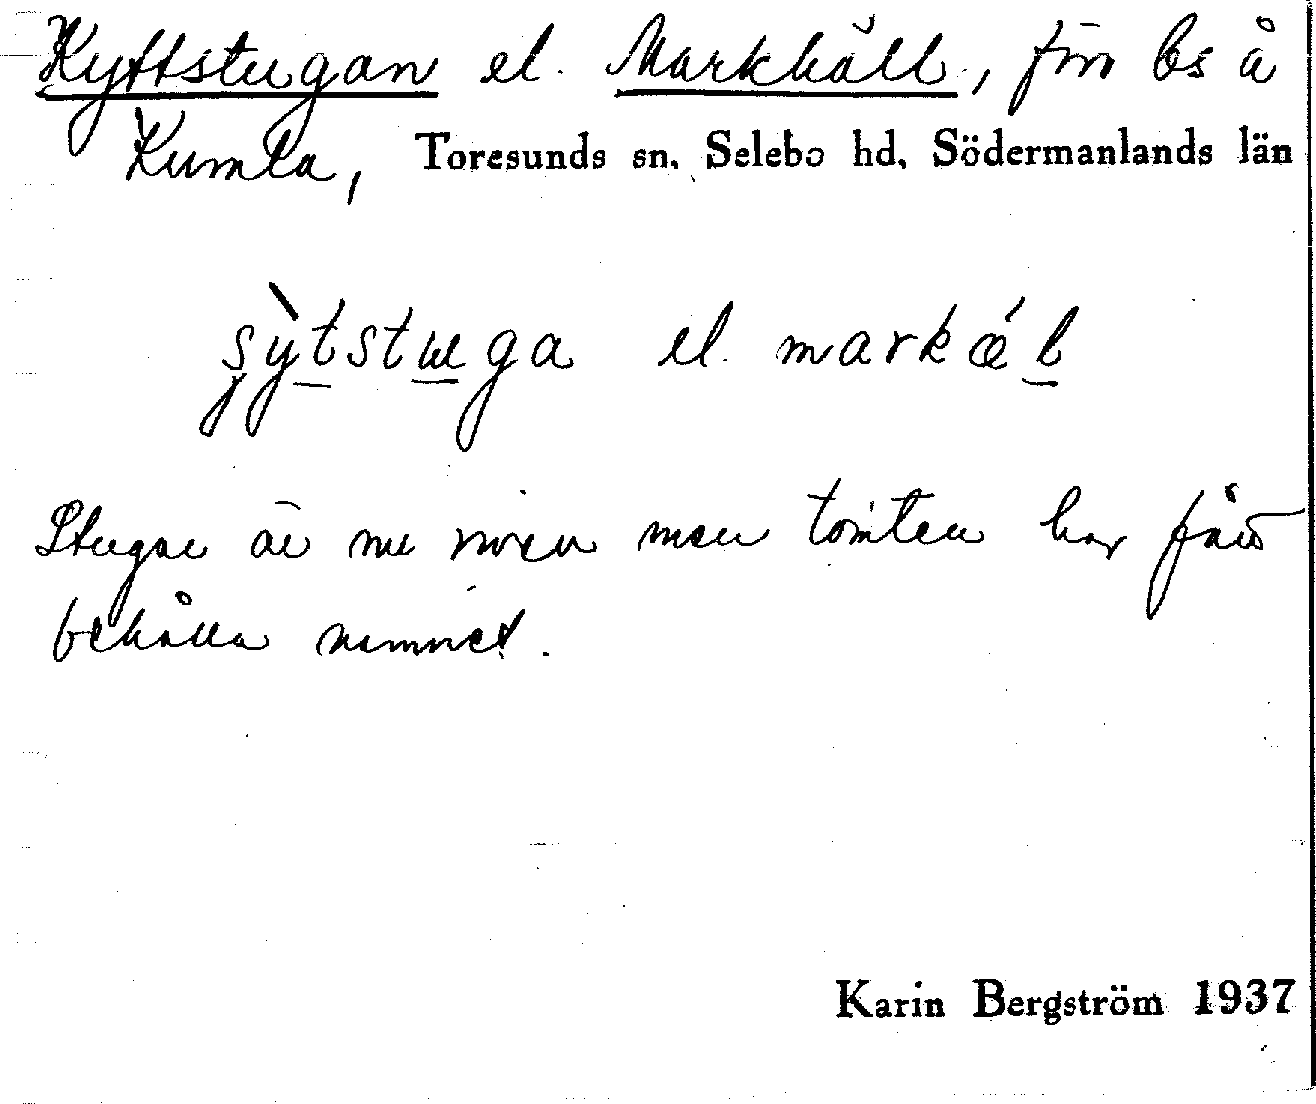 Kyttstugan el. Markhäll, förr bs å
Kumla, Toresunds sn. Selebo hd, Södermanlands län
ʂỳtstuga el. markǽl
Stugan är nu riven men tomten har fått
behålla namnet.
Karin Bergström 1937